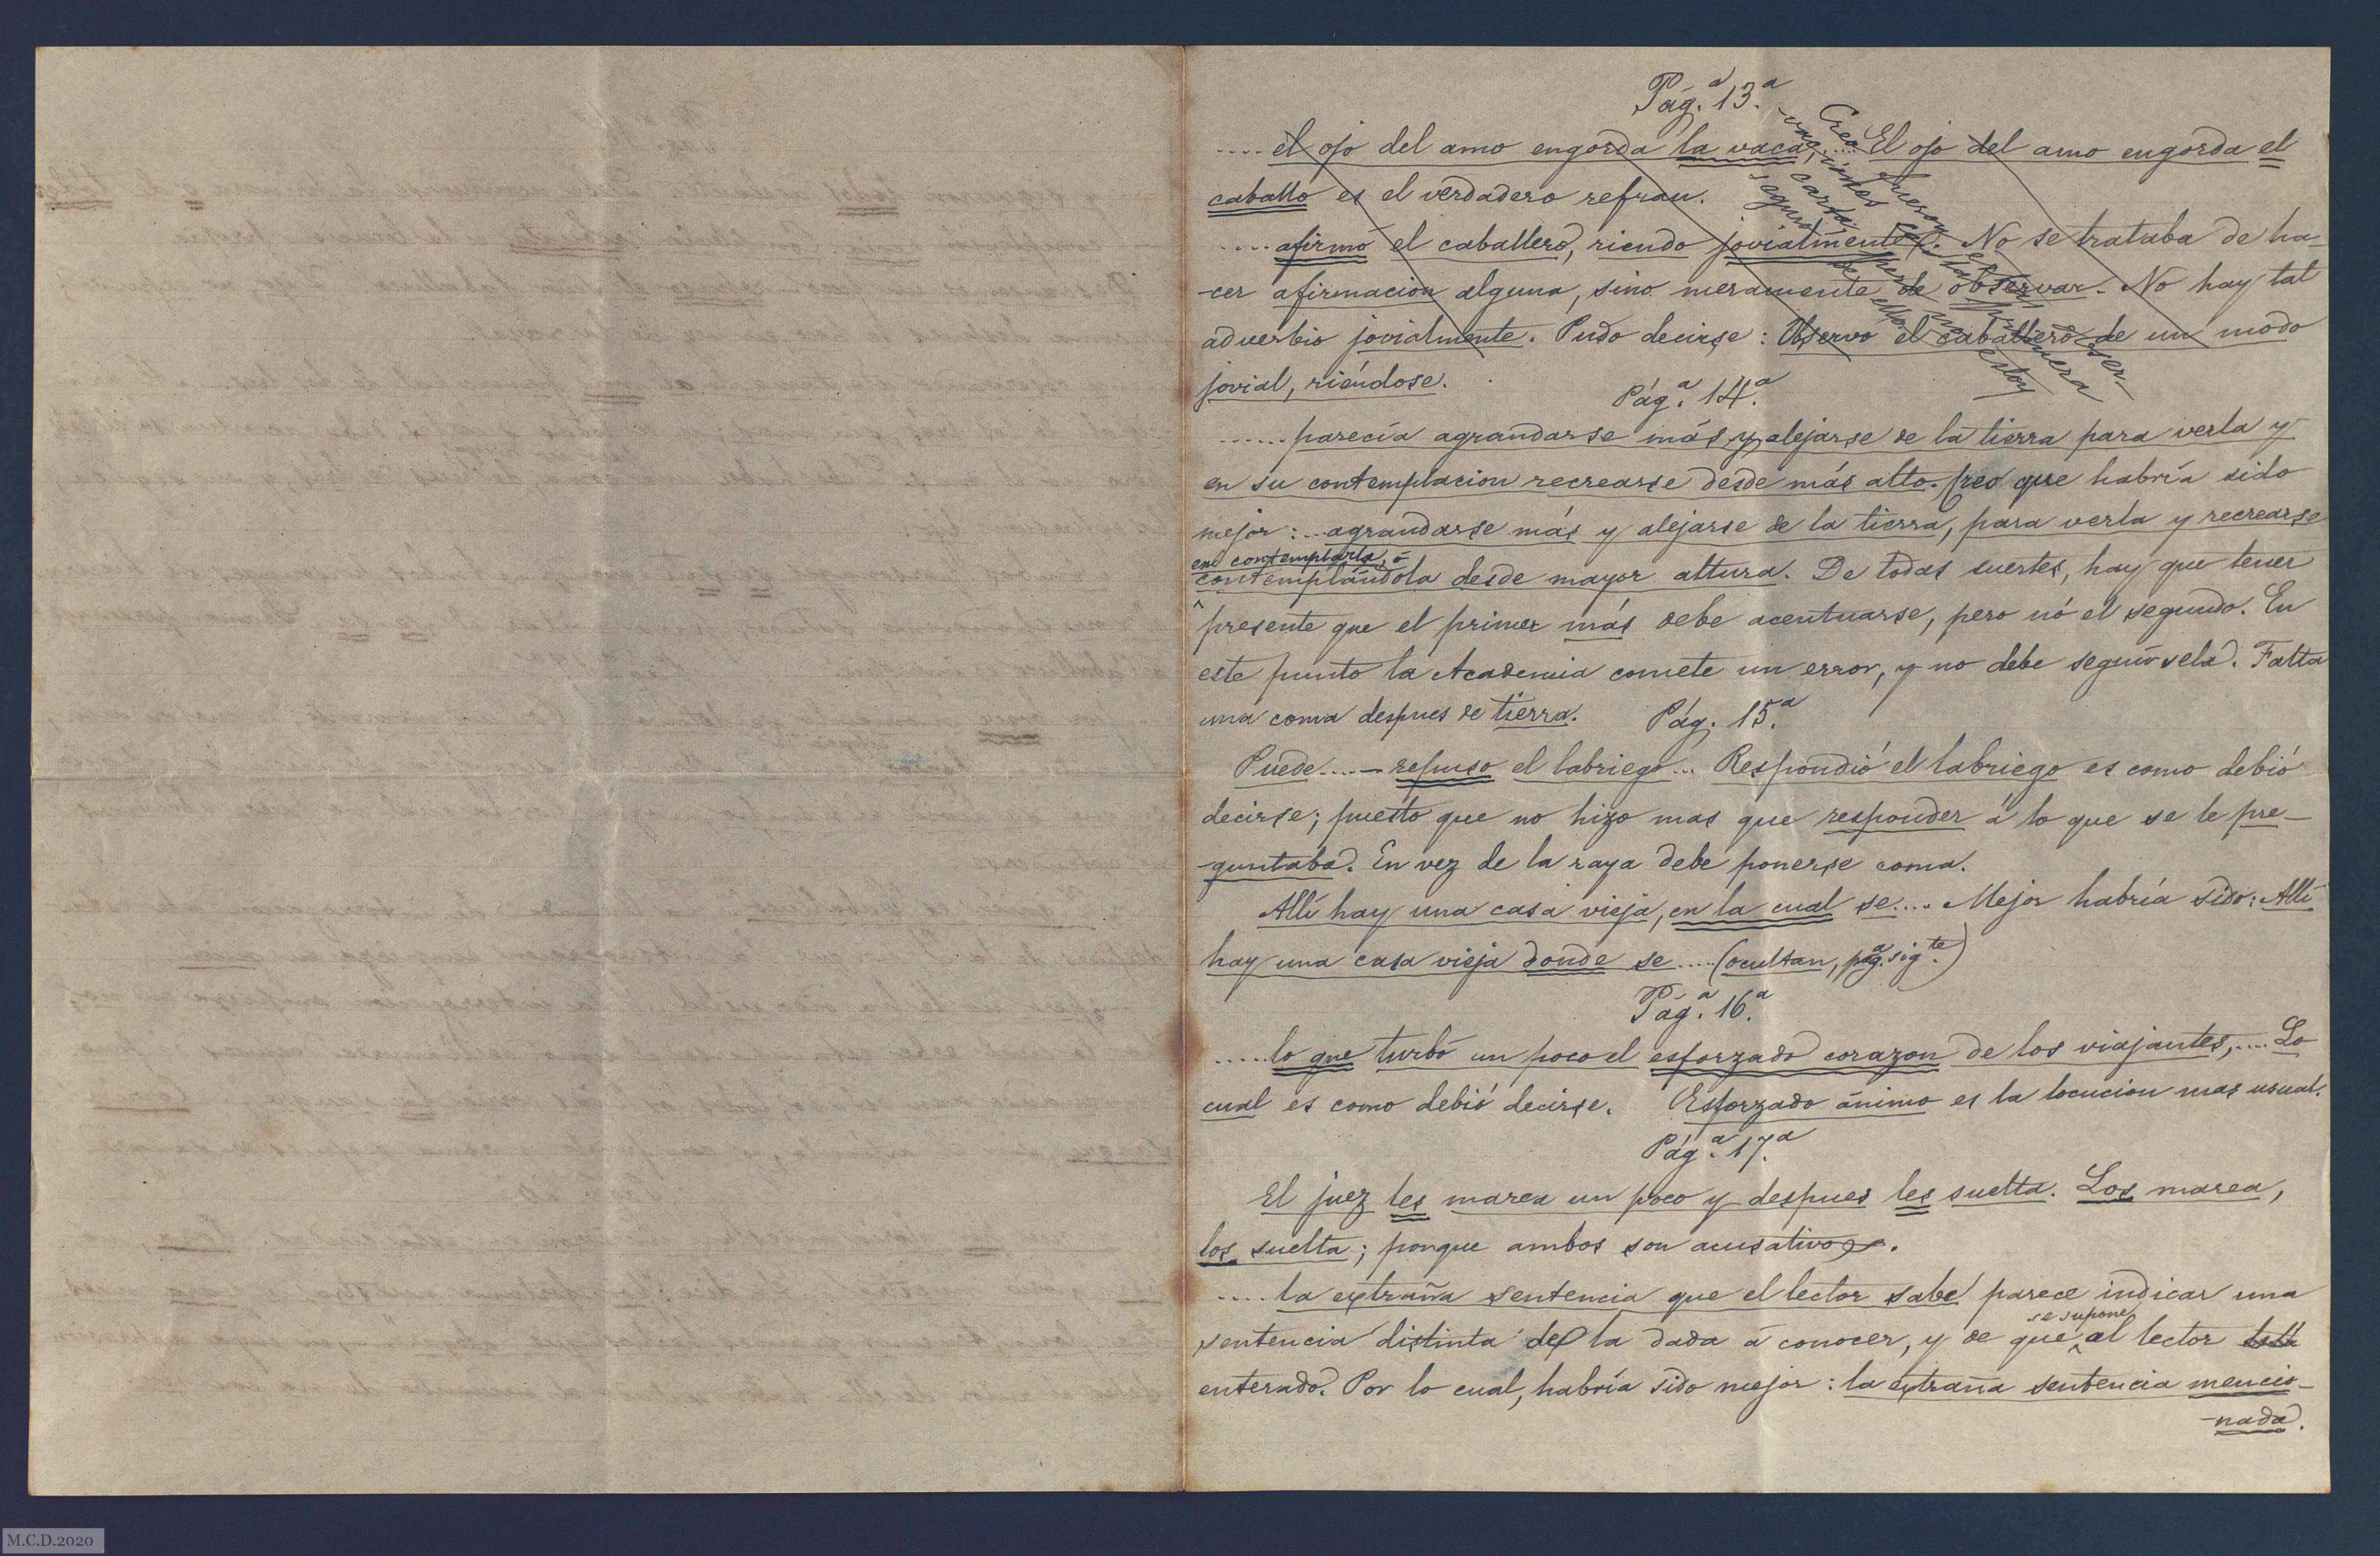 Pág.ª 13.ª
.... el ojo del amo engorda la vaca, .... El ojo del amo engorda el
caballo es el verdadero refran.
.... afirmó el caballero, riendo jovialmente. No se trataba de ha-
-cer afirmacion alguna, sino meramente de observar. No hay tal
adverbio jovialmente. Pudo decirse: Observó el caballero de un modo
jovial, riéndose.
Creo fueron estas obser-
-vaciones en la primera
carta; no estoy
seguro de ello.
Pág.ª 14.ª
...... parecía agrandarse más, y alejarse de la tierra para verla y
en su contemplacion recrearse desde más alto. Creo que habría sido
mejor: ... agrandarse más y alejarse de la tierra, para verla y recrearse
en contemplarla, ó
contemplándola desde mayor altura. De todas suertes, hay que tener
presente que el primer más debe acentuarse, pero nó el segundo. En
este punto la Academia comete un error, y no debe seguírsela. Falta
una coma despues de tierra.
Pág. 15.ª
Puede.... — repuso el labriego... Respondió el labriego es como debió
decirse; puesto que no hizo mas que responder á lo que se le pre-
-guntaba. En vez de la raya debe ponerse coma.
Allí hay una casa vieja, en la cual se.... Mejor habría sido: Allí
hay una casa vieja donde se .... (ocultan, pág.ª sig.te)
Pág.ª 16.ª
..... lo que turbó un poco el esforzado corazon de los viajantes, .... Lo
cual es como debió decirse. Esforzado ánimo es la locucion mas usual.
Pág.ª 17.ª
El juez les marea un poco y despues les suelta. Los marea,
los suelta; porque ambos son acusativos.
.... la extraña sentencia que el lector sabe parece indicar una
se supone
sentencia distinta de la dada á conocer, y de que al lector
enterado. Por lo cual, habría sido mejor: la extraña sentencia mencio-
-nada.
M.C.D.2020